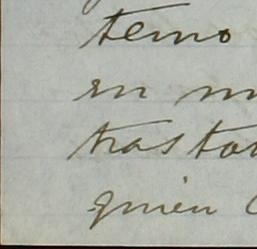 temo
en m
trasto
quien